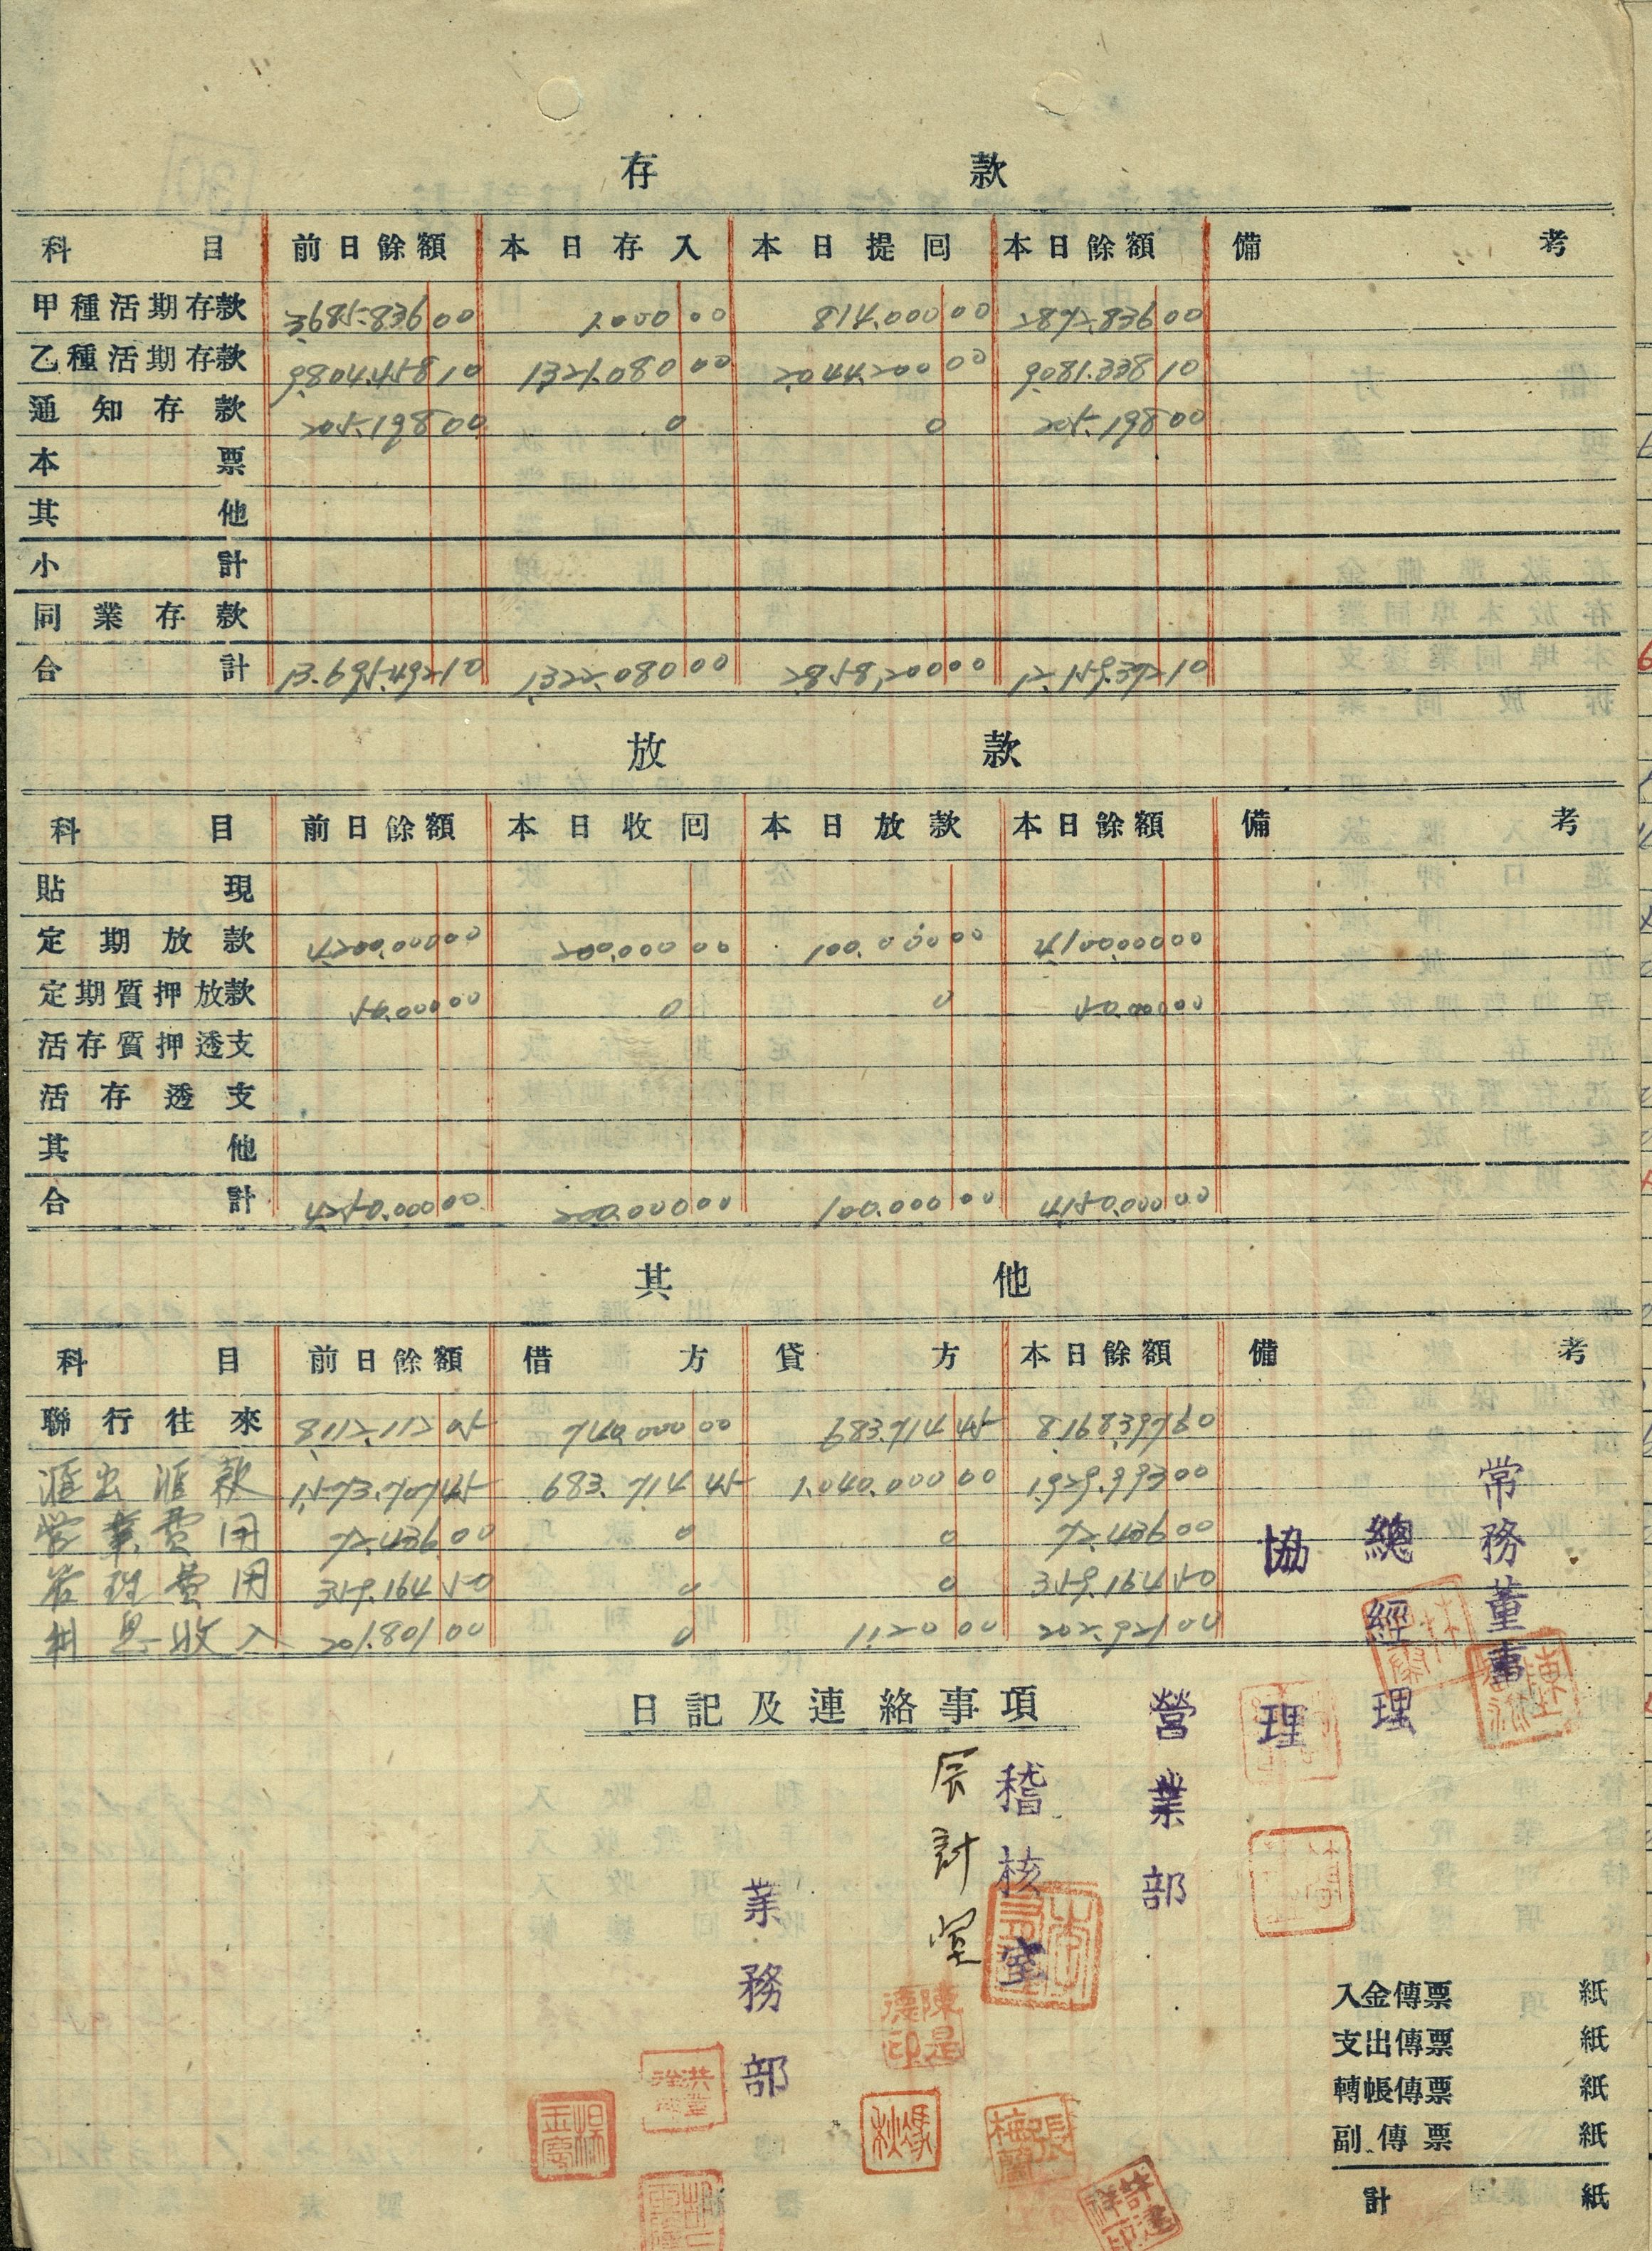 存款
科目 前日餘額 本日存入 本日提回 本日餘額 備考
甲種活期存款 3.685.836 00 1.000 00 814.000 00 2.872.836 00
乙種活期存款 9.804.458 10 1.321.080 00 2.044.200 00 9.081.338 10
通知存款 205.198 00 0 0 205.198 00
本票
其他
小計
同業存款
合計 13.695.492 10 1.322.080 00 2.858,200 00 12.159.372 10
放款
科目 前日餘額 本日收回 本日放款 本日餘額 備考
貼現
定期放款 4.200.000 00 200.000 00 100.000 00 4.100.000 00
定期質押放款 50.000 00 0 0 50.000 00
活存質押透支
活存透支
其他
合計 4.250.000 00 200.000 00 100.000 00 4.150.000 00
其他
科目 前日餘額 借方 貸方 本日餘額 備考
聯行往來 8.112.112 05 740.000 00 683.714 45 8.168.397 60
匯出匯款 1.573.707 45 683.714 45 1.040.000 00 1.929.993 00
営業費用 72.436 00 0 0 72.436 00
管理費用 359.164 50 0 0 359.164 50
利息收入 201.801 00 0 1.120 00 202.921 00
日記及連絡事項
常務董事
總經理
協理
營業部
稽核室
計室
業務部
陳是德印
入金傳票 紙
支出傳票 紙
轉帳傳票 紙
副傳票 紙
計 紙